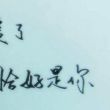 了
恰好是你